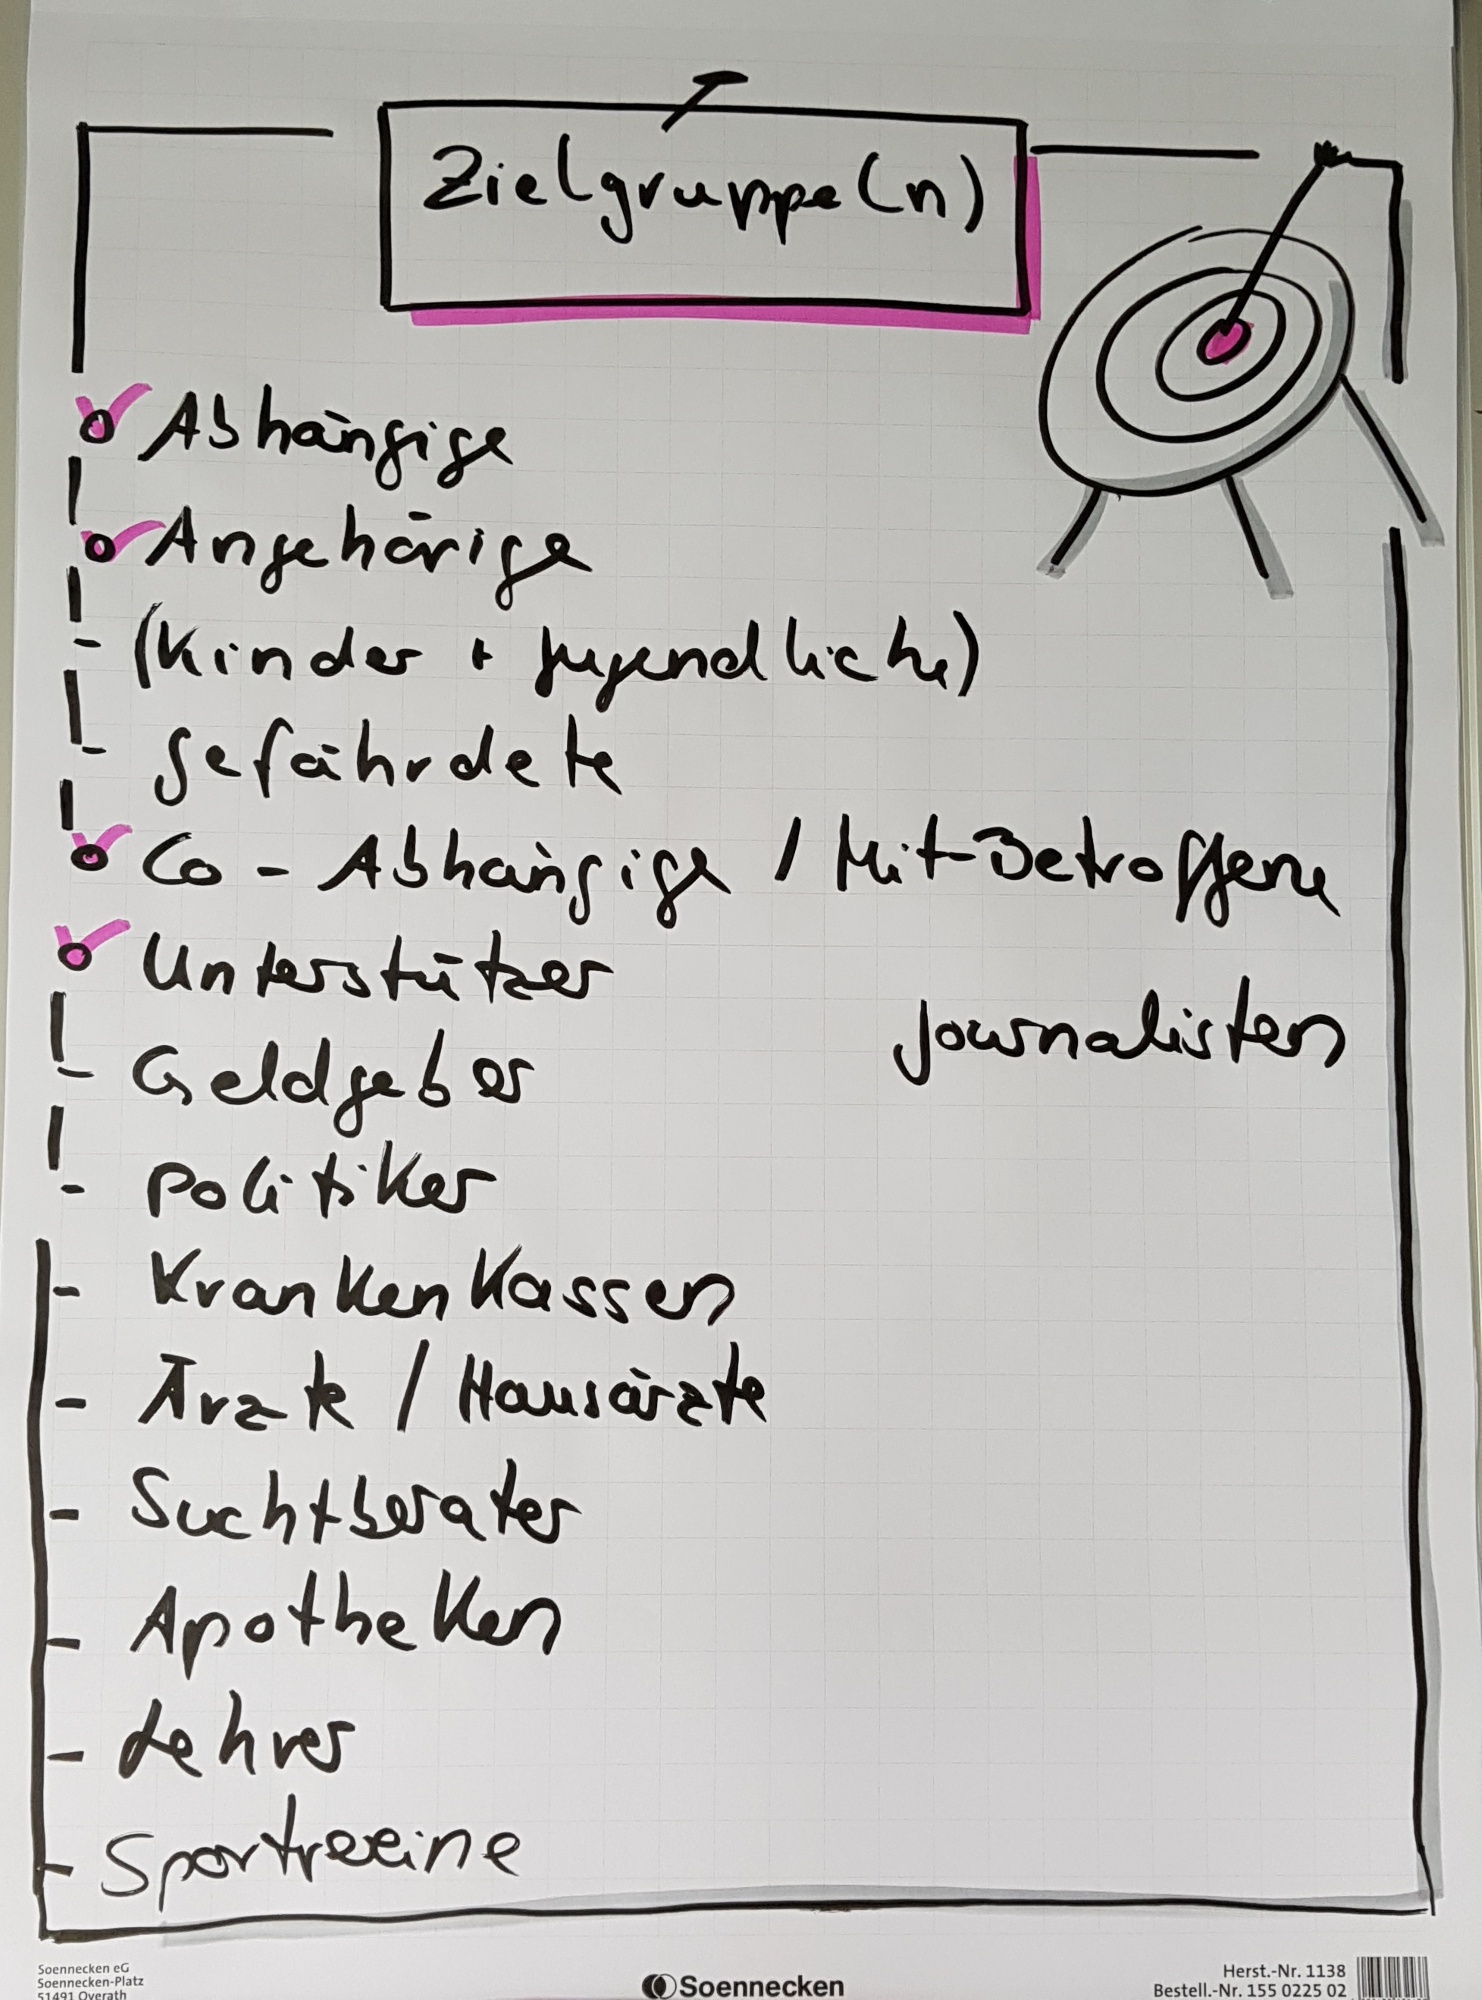 Zielgruppe(n)
Abhängige
Angehörige
- (Kinder + Jugendliche)
- gefährdete
Co-Abhängige / Mit-Betroffene
Unterstützer
Journalisten
- Geldgeber
- Politiker
- Krankenkassen
- Ärzte / Hausärzte
- Suchtberater
- Apotheken
- Lehrer
- Sportvereine
Soennecken eG
Soennecken-Platz
51491 Overath
Soennecken
Herst.-Nr. 1138
Bestell.-Nr. 155 0225 02